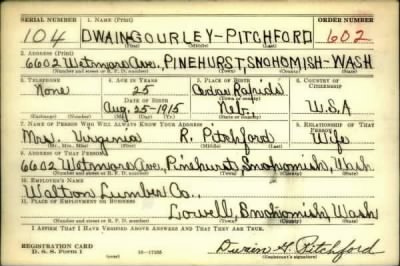 SERIAL NUMBER 1. NAME (Print) ORDER NUMBER
104 DWAIN GOURLEY-PITCHFORD 602
(First) (Middle) (Last)
2. ADDRESS (Print)
6602 Wetmore Ave., PINEHURST, SNOHOMISH-WASH
(Number and street or R. F. D. number) (Town) (County) (State)
3. TELEPHONE 4. AGE IN YEARS 5. PLACE OF BIRTH 6. COUNTRY OF CITIZENSHIP
None 25 Cedar Rapids
DATE OF BIRTH (Town or county)
Aug. 25-1915 Neb. U.S.A
(Exchange) (Number) (Mo.) (Day) (Yr.) (State or country)
7. NAME OF PERSON WHO WILL ALWAYS KNOW YOUR ADDRESS 8. RELATIONSHIP OF THAT PERSON
Mrs. Virginia R. Pitchford Wife
(Mr., Mrs., Miss) (First) (Middle) (Last)
9. ADDRESS OF THAT PERSON
6602 Wetmore Ave, Pinehurst, Snohomish, Wash
(Number and street or R. F. D. number) (Town) (County) (State)
10. EMPLOYER'S NAME
Walton Lumber Co.,
11. PLACE OF EMPLOYMENT OR BUSINESS
Lowell, Snohomish, Wash
(Number and street or R. F. D. number) (Town) (County) (State)
I AFFIRM THAT I HAVE VERIFIED ABOVE ANSWERS AND THAT THEY ARE TRUE.
REGISTRATION CARD
D. S. S. Form 1 16-17105 Dwain G. Pitchford
(Registrant's signature)